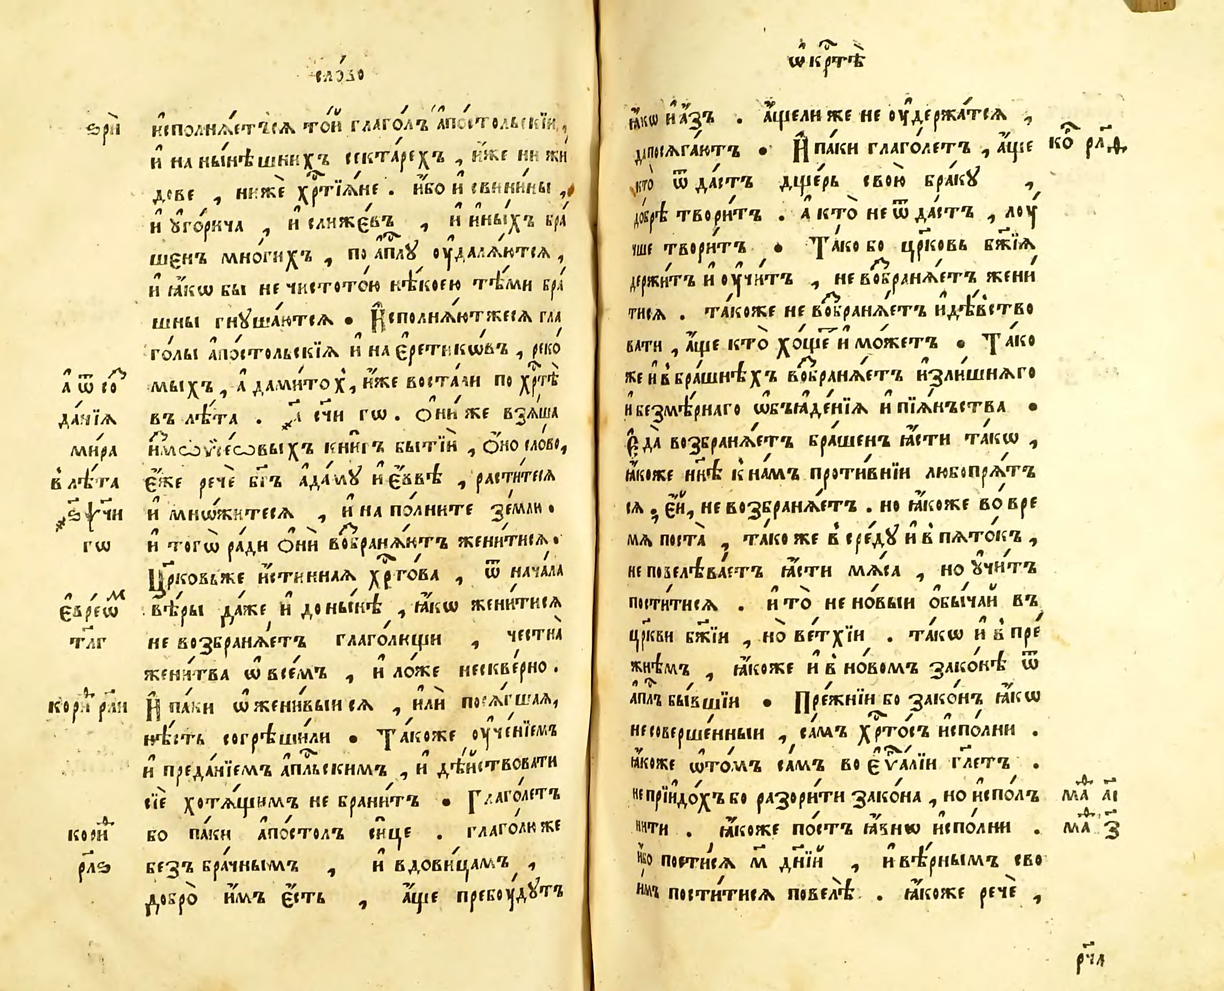 сло́во
ѕр҃і
и҆сполнѧ́етъсѧ то́й глаго́лъ а҆по́стольскїи,
и҆ на ны́нѣшнихъ сектарехъ, и҆́же ни жи
дове, нижѐ хрⷭ҇тїѧ́не. и҆́бо и҆ свинины,
и҆ ᲂу҆гори́ча, и҆ слижє́въ, и҆ и҆ны́хъ бра́
шенъ многи́хъ, по а҆пⷭ҇лу ᲂу҆далѧ́ютсѧ,
и҆ ꙗ҆́кѡ бы не чистото́ю нѣ́коею тѣ́ми бра́
шны гнꙋша́ютсѧ. И҆сполнѧ́ютжесѧ гла
го́лы а҆по́стольскїѧ и҆ на є҆ретикѡ́въ, реко
мы́хъ, а҆дамито́х, и҆́же воста́ли по хрⷭ҇тѣ̀
въ лѣ́та. ҂а҃ сч҃и гѡ. ѻ҆ни́ же взѧ́ша
и҆мѡѷсе́ѡвыхъ кни́гъ бытїи, ѻ҆́но сло́во,
є҆́же речѐ бг҃ъ а҆да́му и҆ є҆́ѵвѣ, расти́тисѧ
и҆ мно́житесѧ, и҆ напо́лните зе́млю.
и҆ тогѡ̀ ра́ди ѻ҆нѝ возбранѧ́ютъ жени́тисѧ.
Цр҃ковьже и҆́стиннаѧ хрⷭ҇то́ва, ѿ нача́ла
вѣ́ры да́же и҆ до ны́нѣ, ꙗ҆́кѡ жени́тисѧ
не возбранѧ́етъ глаго́лющи, честна̀
жени́тва ѡ҆ все́мъ, и҆ ло́же нескве́рно.
И҆ па́ки ѡ҆жени́выисѧ, и҆лѝ посѧ́гшаѧ,
нѣ́сть согрѣши́ли. Та́коже ᲂу҆че́нїемъ
и҆ преда́нїемъ а҆пⷭ҇льскимъ, и҆ дѣ́йствовати
сїѐ хотѧ́щимъ не брани́тъ. Глаго́летъ
бо па́ки а҆по́столъ си́це. глаго́лю же
безъ бра́чнымъ, и҆ вдови́цамъ,
добро̀ и҆́мъ є҆́сть, а҆́ще пребꙋ́дутъ
а҆ ѿ со
да́нїѧ
ми́ра
в лѣ́та
҂ѕ҃ѱч҃и
гѡ
є҆вре́ѡм
тл҃г
кори́нⷴ҇ рл҃и
кори́нⷴ҇
рл҃ѕ
ѡ҆ крⷭ҇тѣ̀
ꙗ҆́кѡ и҆ а҆́зъ. а҆́щели же не ᲂу҆держа́тсѧ,
дапосѧга́ютъ. И҆ па́ки глаго́летъ, а҆́ще
кто̀ ѿда́стъ дще́рь свою̀ бра́ку,
до́брѣ твори́тъ. а҆ кто̀ не ѿда́стъ, лꙋ́
чше твори́тъ. Та́ко бо цр҃ковь бж҃їѧ
держи́тъ и҆ ᲂу҆чи́тъ, не возбранѧ́етъ жени́
тисѧ. та́коже не возбранѧ́етъ и҆ дѣ́вство
вати, а҆́ще кто̀ хо́щет и҆ мо́жетъ. Та́ко
же и҆ в бра́шнѣхъ возбранѧ́етъ и҆зли́шнѧго
и҆ безмѣ́рнаго ѡ҆б̾ꙗде́нїѧ и҆ пїѧ́нъства.
Є҆да̀ возбранѧ́етъ бра́шенъ ꙗ҆́сти та́кѡ,
ꙗ҆́коже нн҃ѣ к на́мъ проти́внїи любопрѧ́тъ
сѧ, є҆́й, не возбранѧ́етъ. но ꙗ҆́коже во́ вре
мѧ поста̀, та́ко же в сре́ду и҆ в пѧто́къ,
не повелѣва́етъ ꙗ҆́сти мѧ́са, но ᲂу҆чи́тъ
пости́тисѧ. и҆ то̀ не но́выи ѻ҆бы́чай въ
цр҃кви бж҃їи, но̀ ве́тхїи. та́кѡ и҆ в пре́
жнѣмъ, ꙗ҆́коже и҆ в но́вомъ зако́нѣ ѿ
а҆пⷭ҇лъ бы́вшїи. Пре́жнїи бо зако́нъ ꙗ҆́кѡ
несоверше́нныи, са́мъ хрⷭ҇то́съ и҆спо́лни.
ꙗ҆́коже ѡ҆то́мъ са́мъ во є҆ѵⷢ҇а́лїи гл҃етъ.
не прїидо́хъ бо разори́ти зако́на, но и҆спо́лъ
нити. ꙗ҆́коже по́стъ ꙗ҆́внѡ и҆спо́лни.
и҆́бо пости́сѧ м҃ дні́й, и҆ вѣ́рнымъ сво
и҆́мъ пости́тисѧ повелѣ̀. ꙗ҆́коже речѐ,
ко рл҃ѳ
маⷴ҇ а҃і
маⷴ҇ з҃
рч҃а